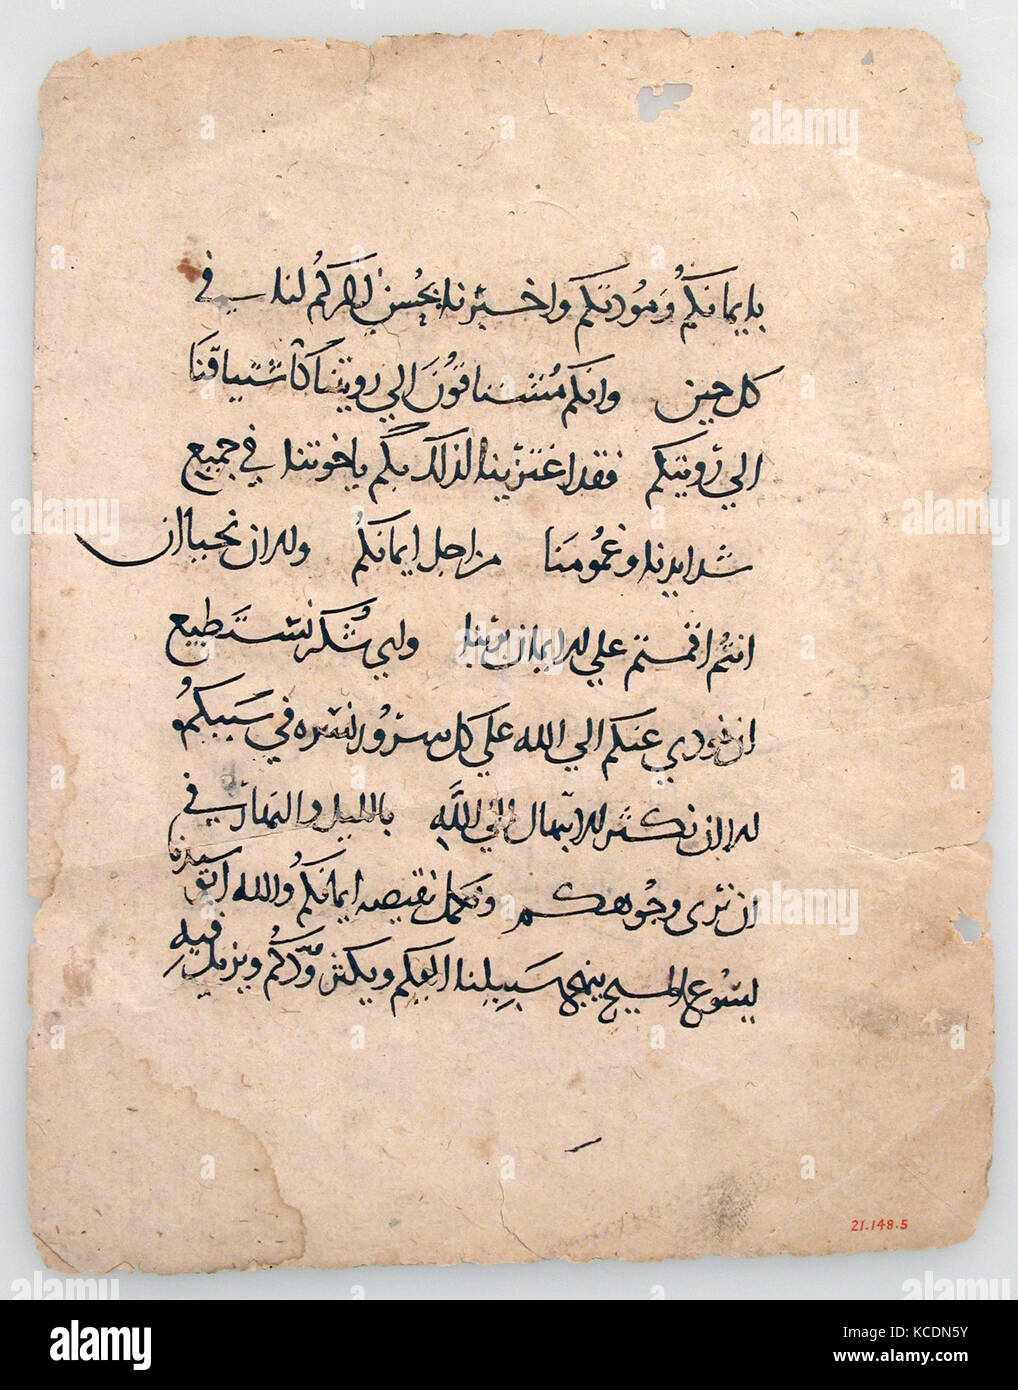 بايمانكم ومودتكم واخبرنا بحُسن ذكركُم لنا في
كل حين وانكم مُشتاقوُنَ الي رويتنا كاشتياقنَا
الي رويتكم فقد اعتزينا لذلك بكم ياخوتنا في جميع
شدايدنا وغمُومنَا من اجل ايمانكُم والان نحيا ان
انتُم اقمتم علي الايمان بربنا واي شُكر نستَطيع
ان نودي عنكم الي الله علي كل سرُور نسره في سَببكمُ
الا ان نكثر الابتهال الي اللَّهِ بالليل والنهار في
ان نرى وجُوهكم ونكمل نقيصه ايمانكُم والله ابونا وسيدنا
ليسُوع المسيح ينهج سَبيلنا اليكم ويكثر ودّكُم ويزيل فيهِ
21.148.5
alamy
Image ID: KCDN5Y
www.alamy.com